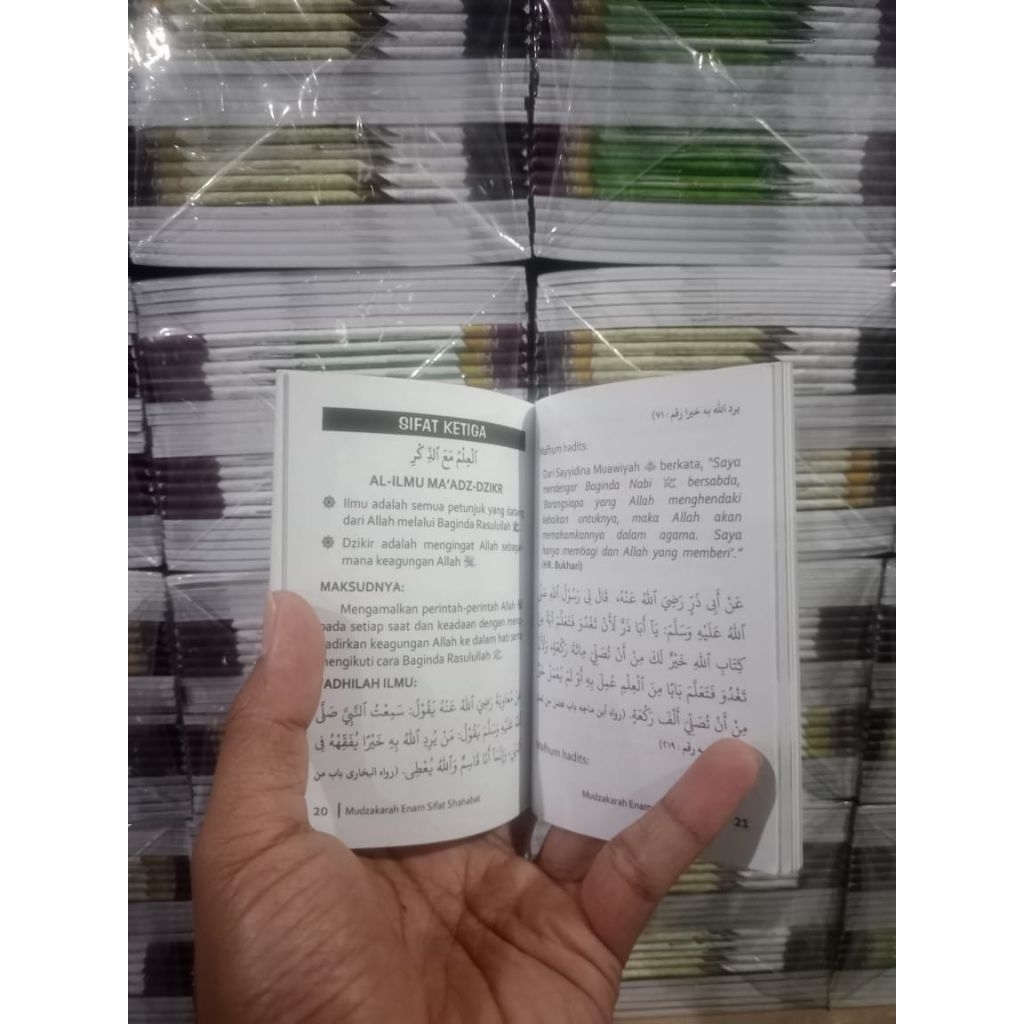 SIFAT KETIGA
اَلْعِلْمُ مَعَ الذِّكْرِ
AL-ILMU MA'ADZ-DZIKR
Ilmu adalah semua petunjuk yang datang
dari Allah melalui Baginda Rasulullah ﷺ.
Dzikir adalah mengingat Allah sebagai-
mana keagungan Allah
MAKSUDNYA:
Mengamalkan perintah-perintah Allah
pada setiap saat dan keadaan dengan meng-
hadirkan keagungan Allah ke dalam hati serta
mengikuti cara Baginda Rasulullah ﷺ.
FADHILAH ILMU:
عَنْ مُعَاوِيَةَ رَضِيَ اللهُ عَنْهُ يَقُوْلُ: سَمِعْتُ النَّبِيَّ صَلَّى
اللهُ عَلَيْهِ وَسَلَّمَ يَقُوْلُ: مَنْ يُرِدِ اللهُ بِهِ خَيْرًا يُفَقِّهْهُ فِى
الدِّيْنِ، وَإِنَّمَا أَنَا قَاسِمٌ وَاللهُ يُعْطِى. (رواه البخارى باب من
20 | Mudzakarah Enam Sifat Shahabat
يرد الله به خيرا رقم : ٧١)
Mafhum hadits:
Dari Sayyidina Muawiyah berkata, "Saya
mendengar Baginda Nabi ﷺ bersabda,
'Barangsiapa yang Allah menghendaki
kebaikan untuknya, maka Allah akan
memahamkannya dalam agama. Saya
hanya membagi dan Allah yang memberi'."
(HR. Bukhari)
عَنْ أَبِى ذَرٍّ رَضِيَ اللهُ عَنْهُ، قَالَ لِى رَسُوْلُ اللهِ صَلَّى
اللهُ عَلَيْهِ وَسَلَّمَ: يَا أَبَا ذَرٍّ لَأَنْ تَغْدُوَ فَتَعَلَّمَ آيَةً مِنْ
كِتَابِ اللهِ خَيْرٌ لَكَ مِنْ أَنْ تُصَلِّيَ مِائَةَ رَكْعَةٍ، وَلَأَنْ
تَغْدُوَ فَتَعَلَّمَ بَابًا مِنَ الْعِلْمِ عُمِلَ بِهِ أَوْ لَمْ يُعْمَلْ خَيْرٌ
مِنْ أَنْ تُصَلِّيَ أَلْفَ رَكْعَةٍ. (رواه ابن ماجه باب فضل من تعلم
رقم : ٢١٩)
Mafhum hadits:
Mudzakarah Enam
21